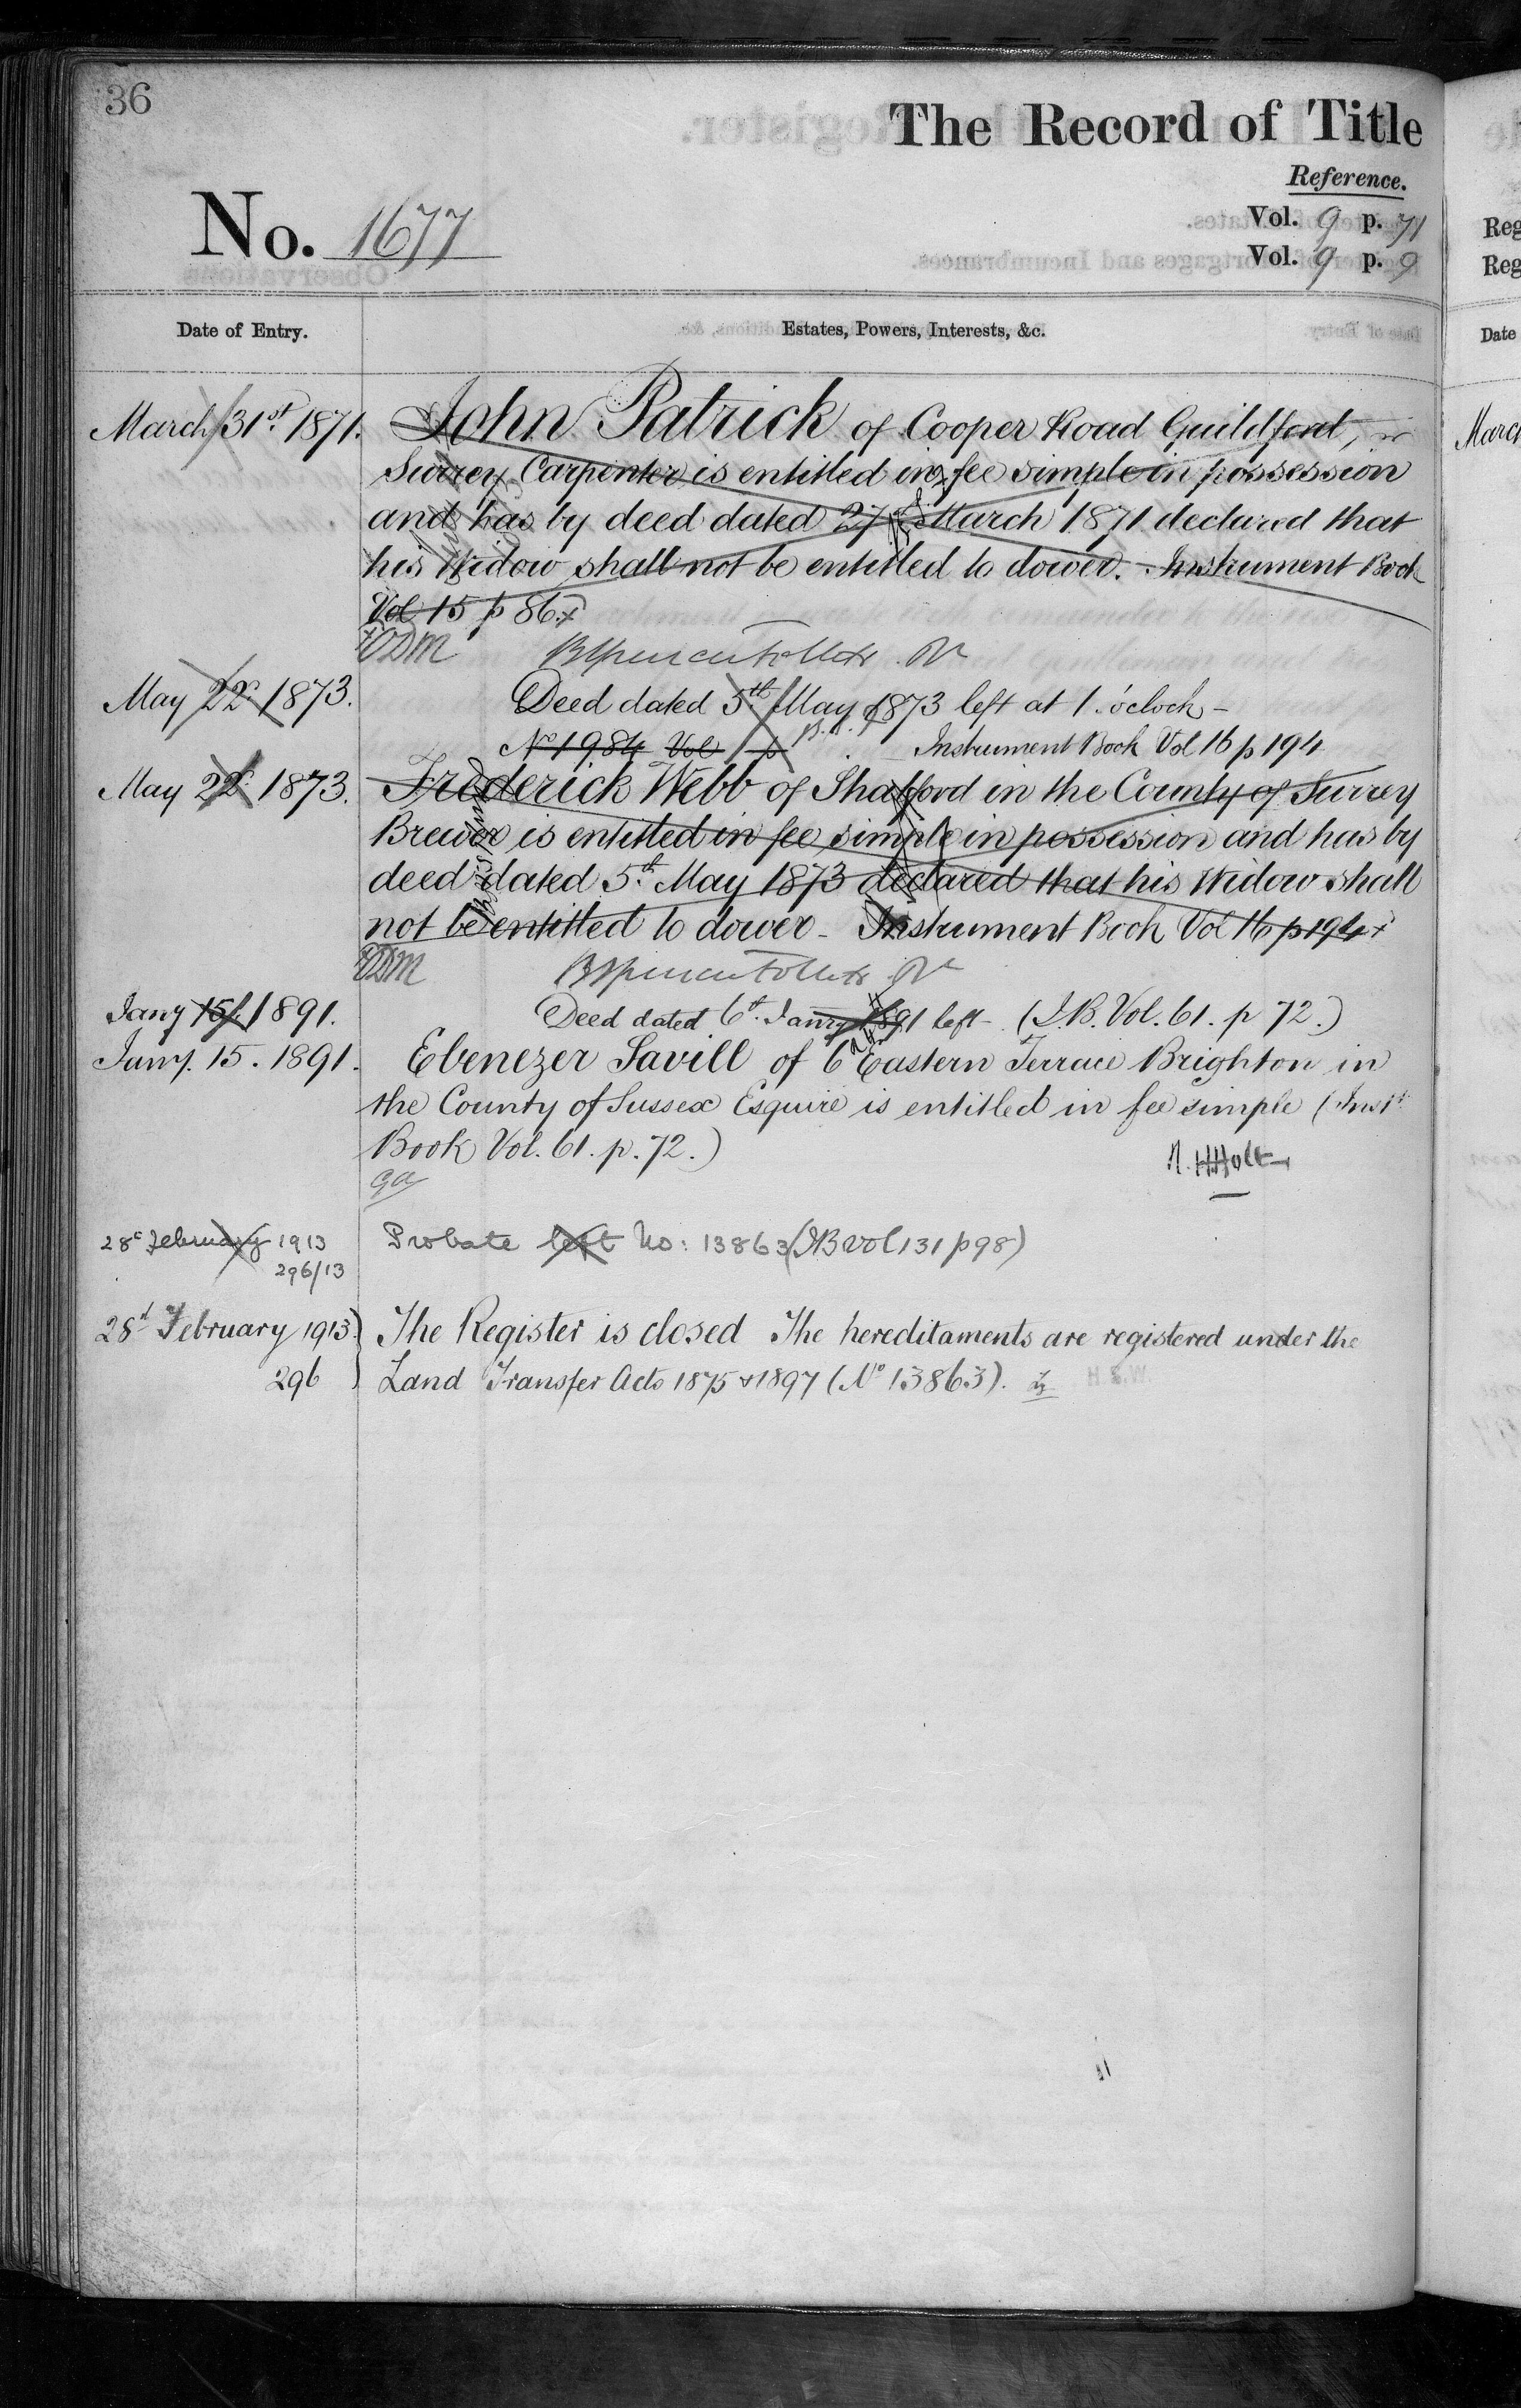 36
The Record of Title
Reference.
No. 1677
Vol. 9 p. 71
Vol. 9 p. 9
Date of Entry.
Estates, Powers, Interests, &c.
March 31st. 1871. John Patrick of Cooper Road Guildford, in
Surrey Carpenter is entitled in fee simple in possession
and has by deed dated 27 March 1871 declared that
his Widow shall not be entitled to dower. Instrument Book
Vol 15 p 86
May 22d 1873. Deed dated 5th May 1873 left at 1. o'clock -
No 1984 Vol p Instrument Book Vol 16 p 194
May 22d 1873. Frederick Webb of Shalford in the County of Surrey
Brewer is entitled in fee simple in possession and has by
deed dated 5th May 1873 declared that his Widow shall
not be entitled to dower - Instrument Book Vol 16 p 194
Jany 15. 1891. Deed dated 6th. Jany 1891 left - (I.B. Vol. 61. p 72.)
Jany. 15. 1891. Ebenezer Savill of 6 Eastern Terrace Brighton in
the County of Sussex Esquire is entitled in fee simple (Inst.
Book Vol. 61. p. 72.)
Holt
28 February 1913 Probate left No: 13863 (IB vol 131 p 98)
296/13
28 February 1913 The Register is closed The hereditaments are registered under the
296 Land Transfer Acts 1875 & 1897 (No 13863).
Reg
Reg
Date
March